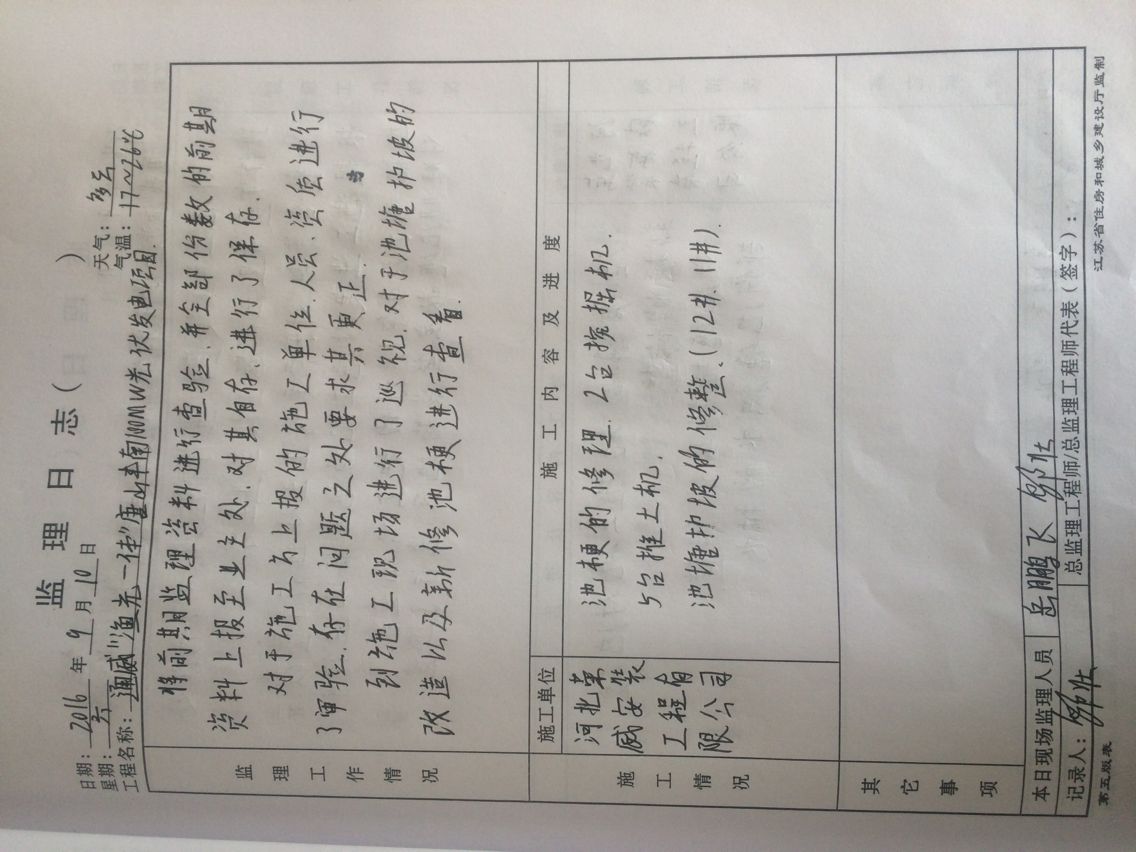 监理日志(        )
日期：2016年9月10日        天气：多云
星期：六        气温：17~26℃
工程名称：通威"渔光一体"唐山丰南100MW光伏发电项目.
监理工作情况
将前期监理资料进行查验.并全部份数的前期
资料上报至业主处.对其自存.进行了保存.
对于施工方上报的施工单位.人员.资质进行
了审验.存在问题之处要求其更正.
到施工现场进行了巡视.对于池塘护坡的
改造以及新修池梗进行查看.
施工情况
施工单位
河北荣
威安装
工程有
限公司
施工内容及进度
池梗的修理.2台挖掘机.
5台推土机.
池塘护坡的修整.(12#.11#).
其它事项
本日现场监理人员 岳鹏飞
记录人：
总监理工程师/总监理工程师代表(签字)：
第五版表
江苏省住房和城乡建设厅监制